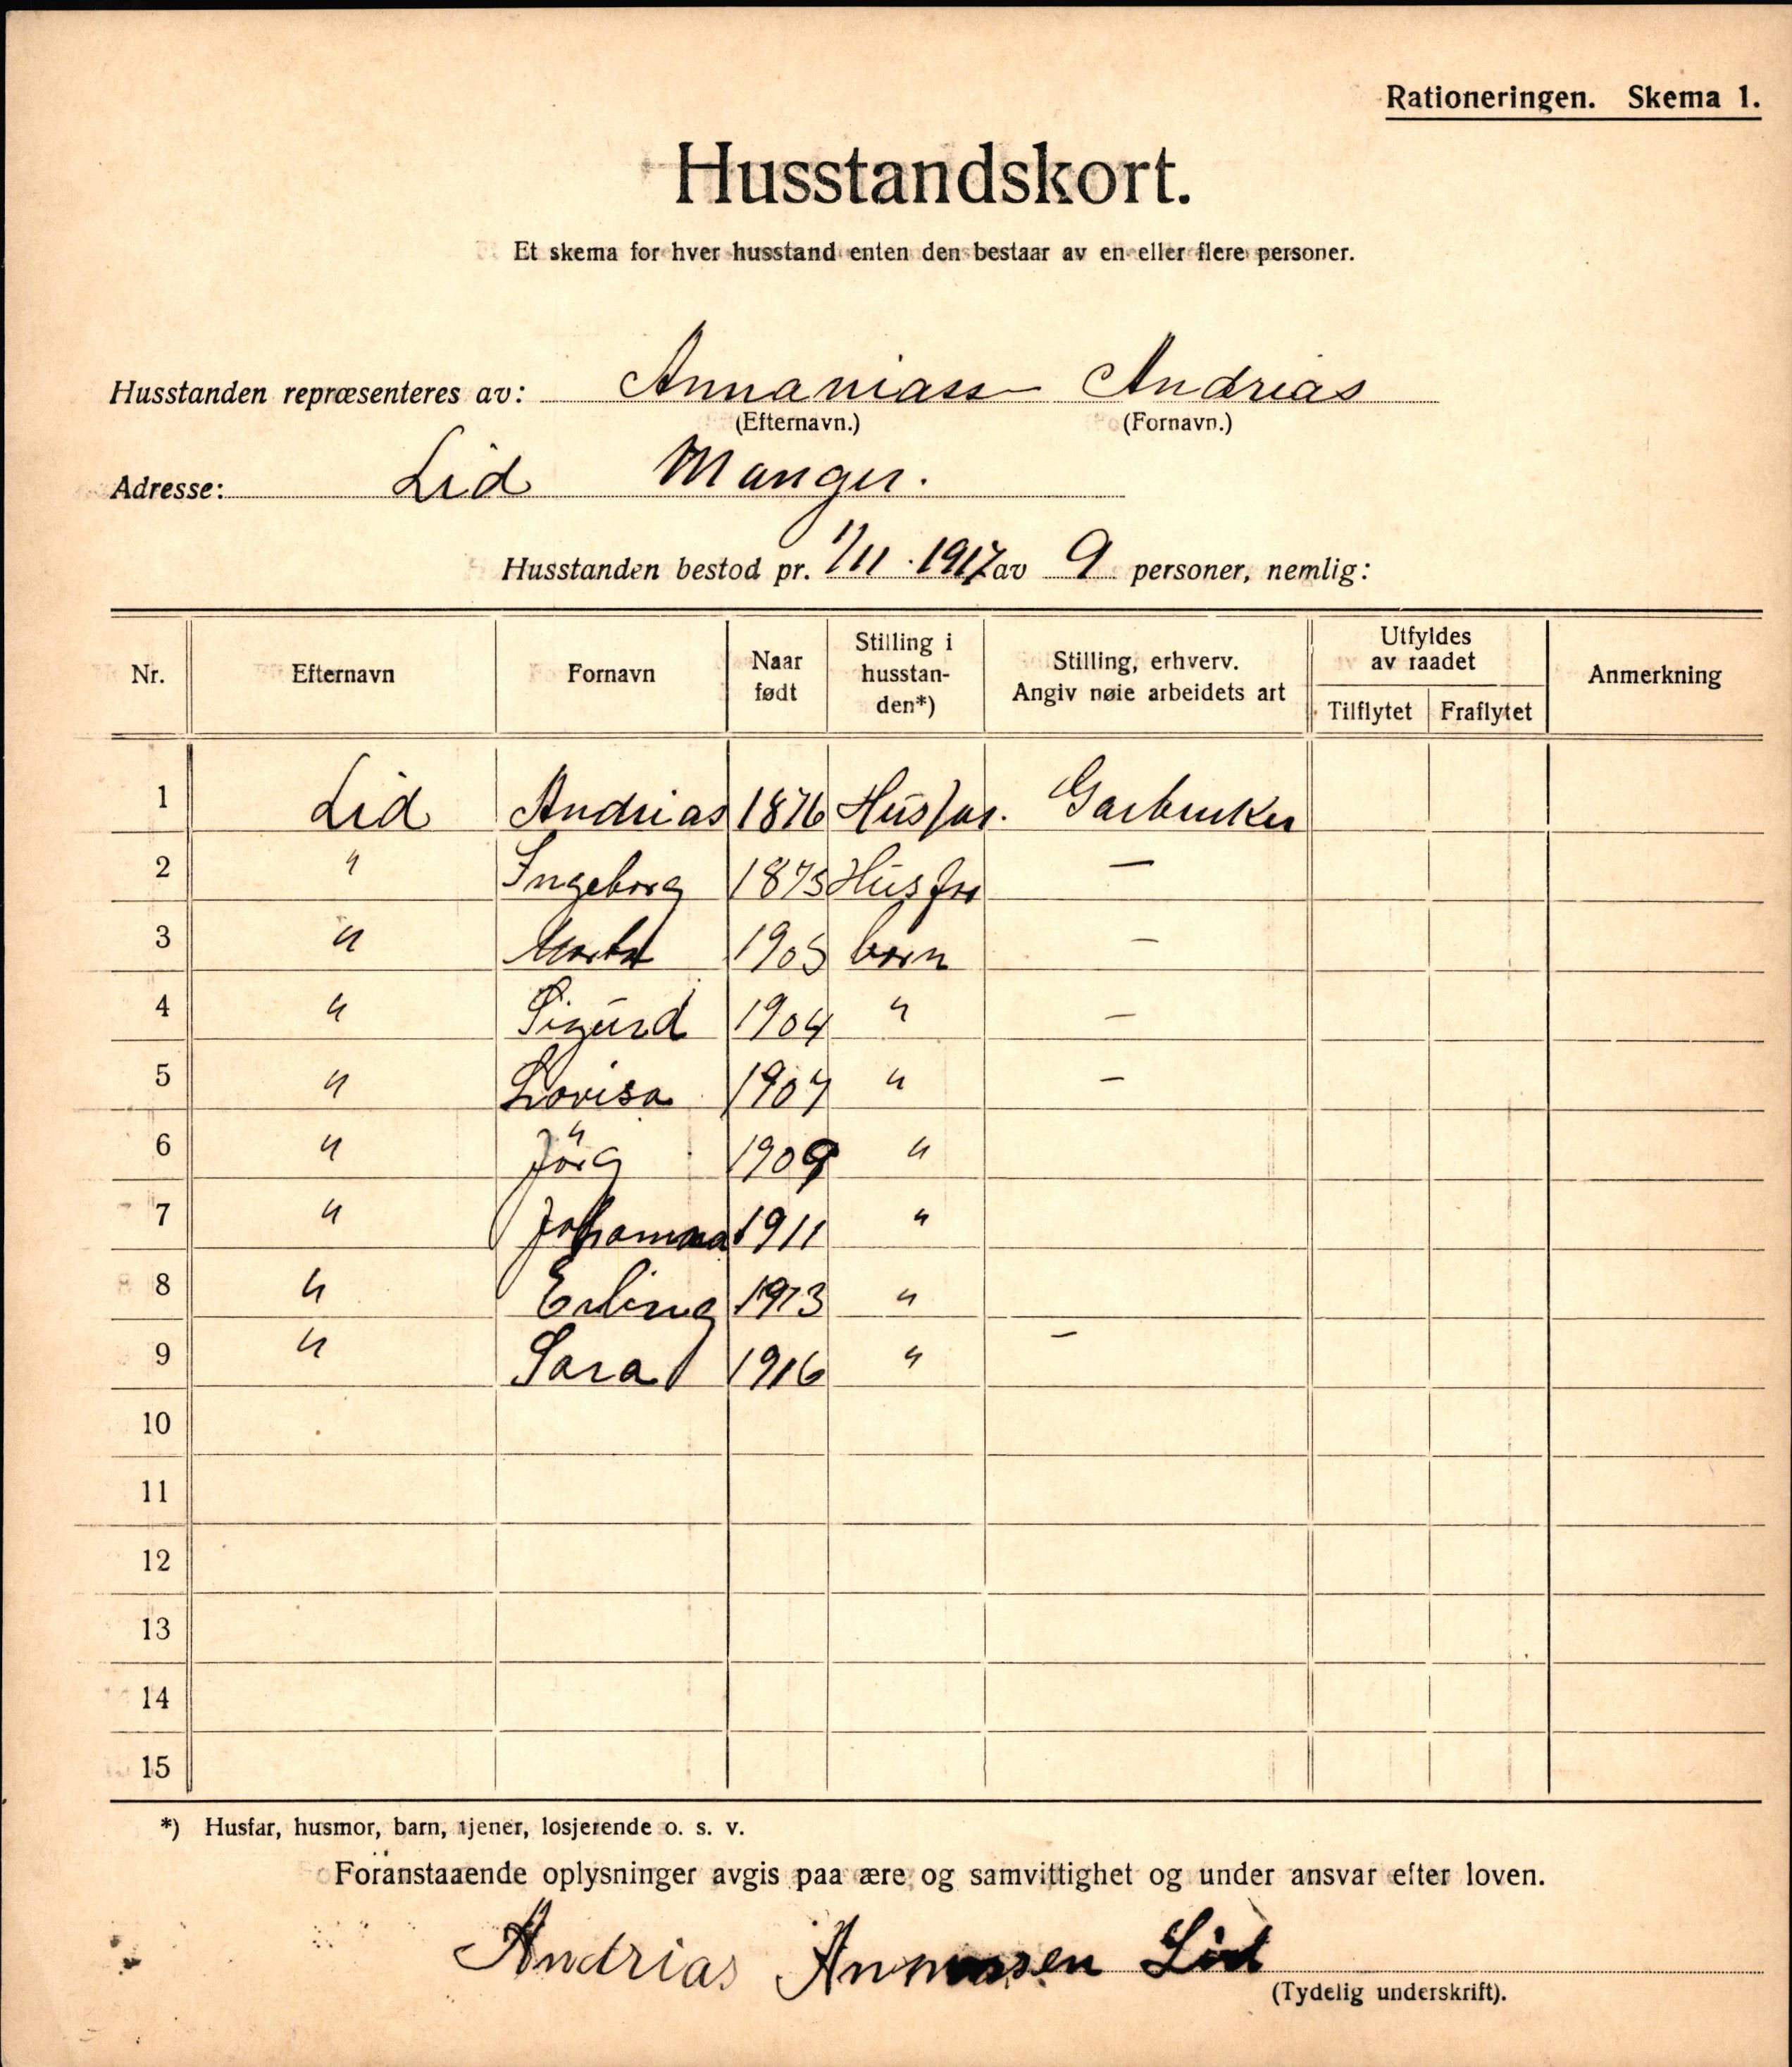 Rationeringen. Skema 1.
Husstandskort.
Et skema for hver husstand enten den bestaar av en eller flere personer.
Husstanden repræsenteres av: Annaniass Andrias
(Efternavn.) (Fornavn.)
Adresse: Lid Manger.
Husstanden bestod pr. 1/11 . 1917 av 9 personer, nemlig:
Nr. Efternavn Fornavn Naar født Stilling i husstanden*) Stilling, erhverv. Angiv nøie arbeidets art Utfyldes av raadet Tilflytet Fraflytet Anmerkning
1 Lid Andrias 1876 Husfar. Garbruker
2 " Ingeborg 1873 Husfor —
3 " 1903 born —
4 " Sigurd 1904 " —
5 " Lovisa 1907 " —
6 " 1909 "
7 " Johanna 1911 "
8 " Erling 1913 "
9 " Sara 1916 " —
10
11
12
13
14
15
*) Husfar, husmor, barn, tjener, losjerende o. s. v.
Foranstaaende oplysninger avgis paa ære og samvittighet og under ansvar efter loven.
Andrias Lid
(Tydelig underskrift).